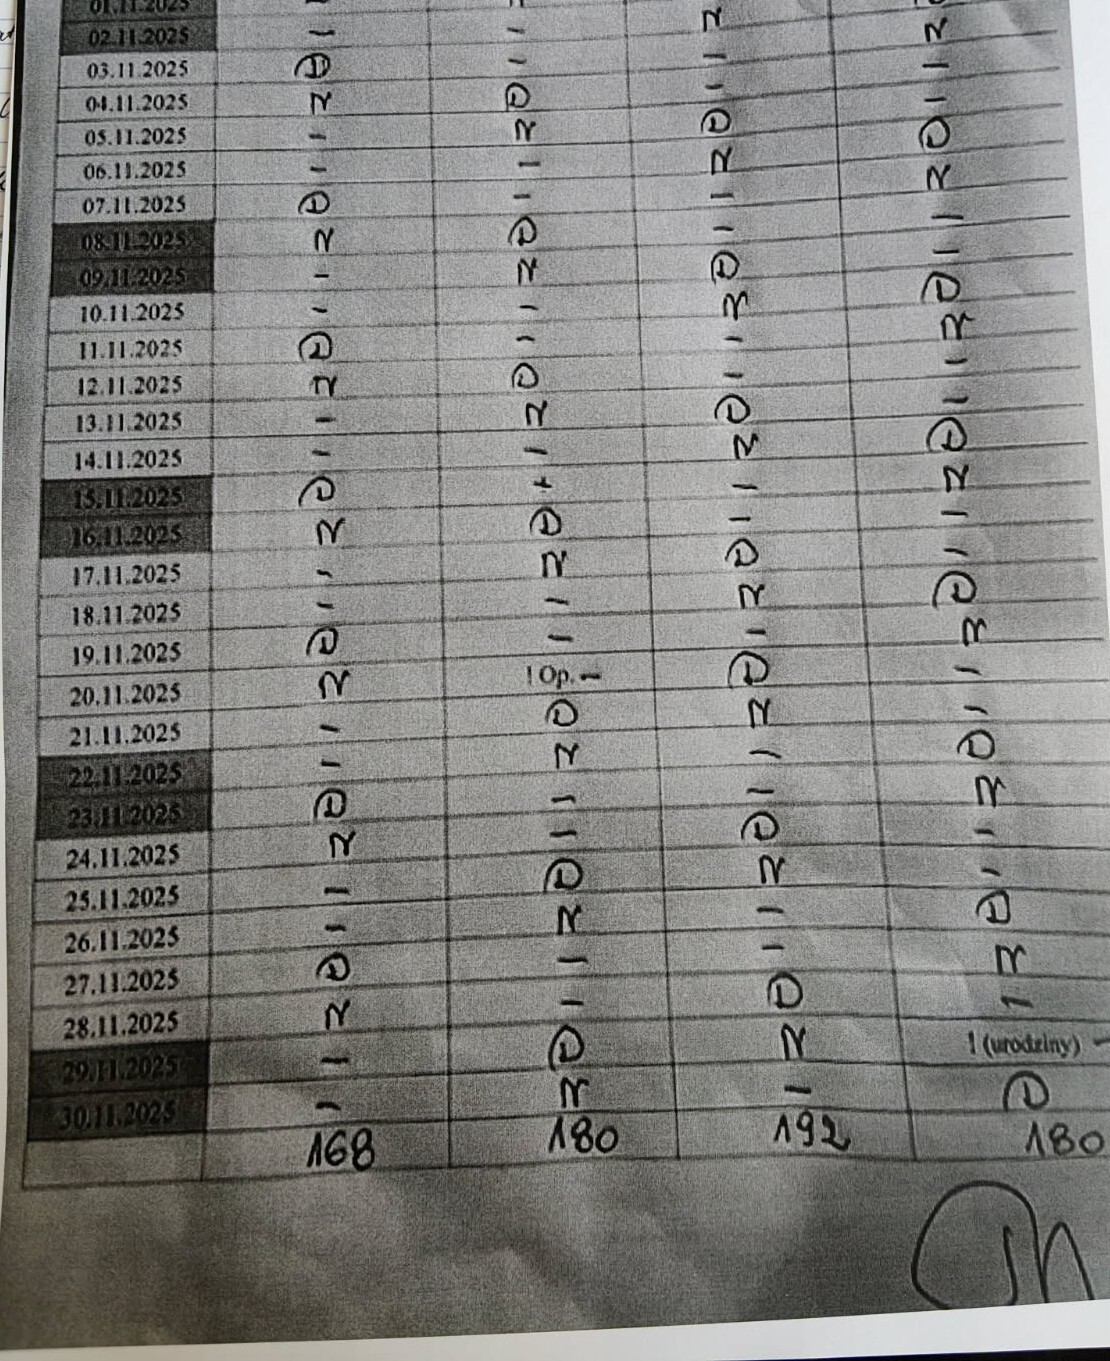 01.11.2025 -
02.11.2025 - - N D
03.11.2025 D - - N
04.11.2025 N D - -
05.11.2025 - N D -
06.11.2025 - - N D
07.11.2025 D - - N
08.11.2025 N D - -
09.11.2025 - N D -
10.11.2025 - - N D
11.11.2025 D - - N
12.11.2025 N D - -
13.11.2025 - N D -
14.11.2025 - - N D
15.11.2025 D - - N
16.11.2025 N D - -
17.11.2025 - N D -
18.11.2025 - - N D
19.11.2025 D - - N
20.11.2025 N ! Op. - D -
21.11.2025 - D N -
22.11.2025 - N - D
23.11.2025 D - - N
24.11.2025 N - D -
25.11.2025 - D N -
26.11.2025 - N - D
27.11.2025 D - - N
28.11.2025 N - D -
29.11.2025 - D N ! (urodziny) -
30.11.2025 - N - D
168 180 192 180